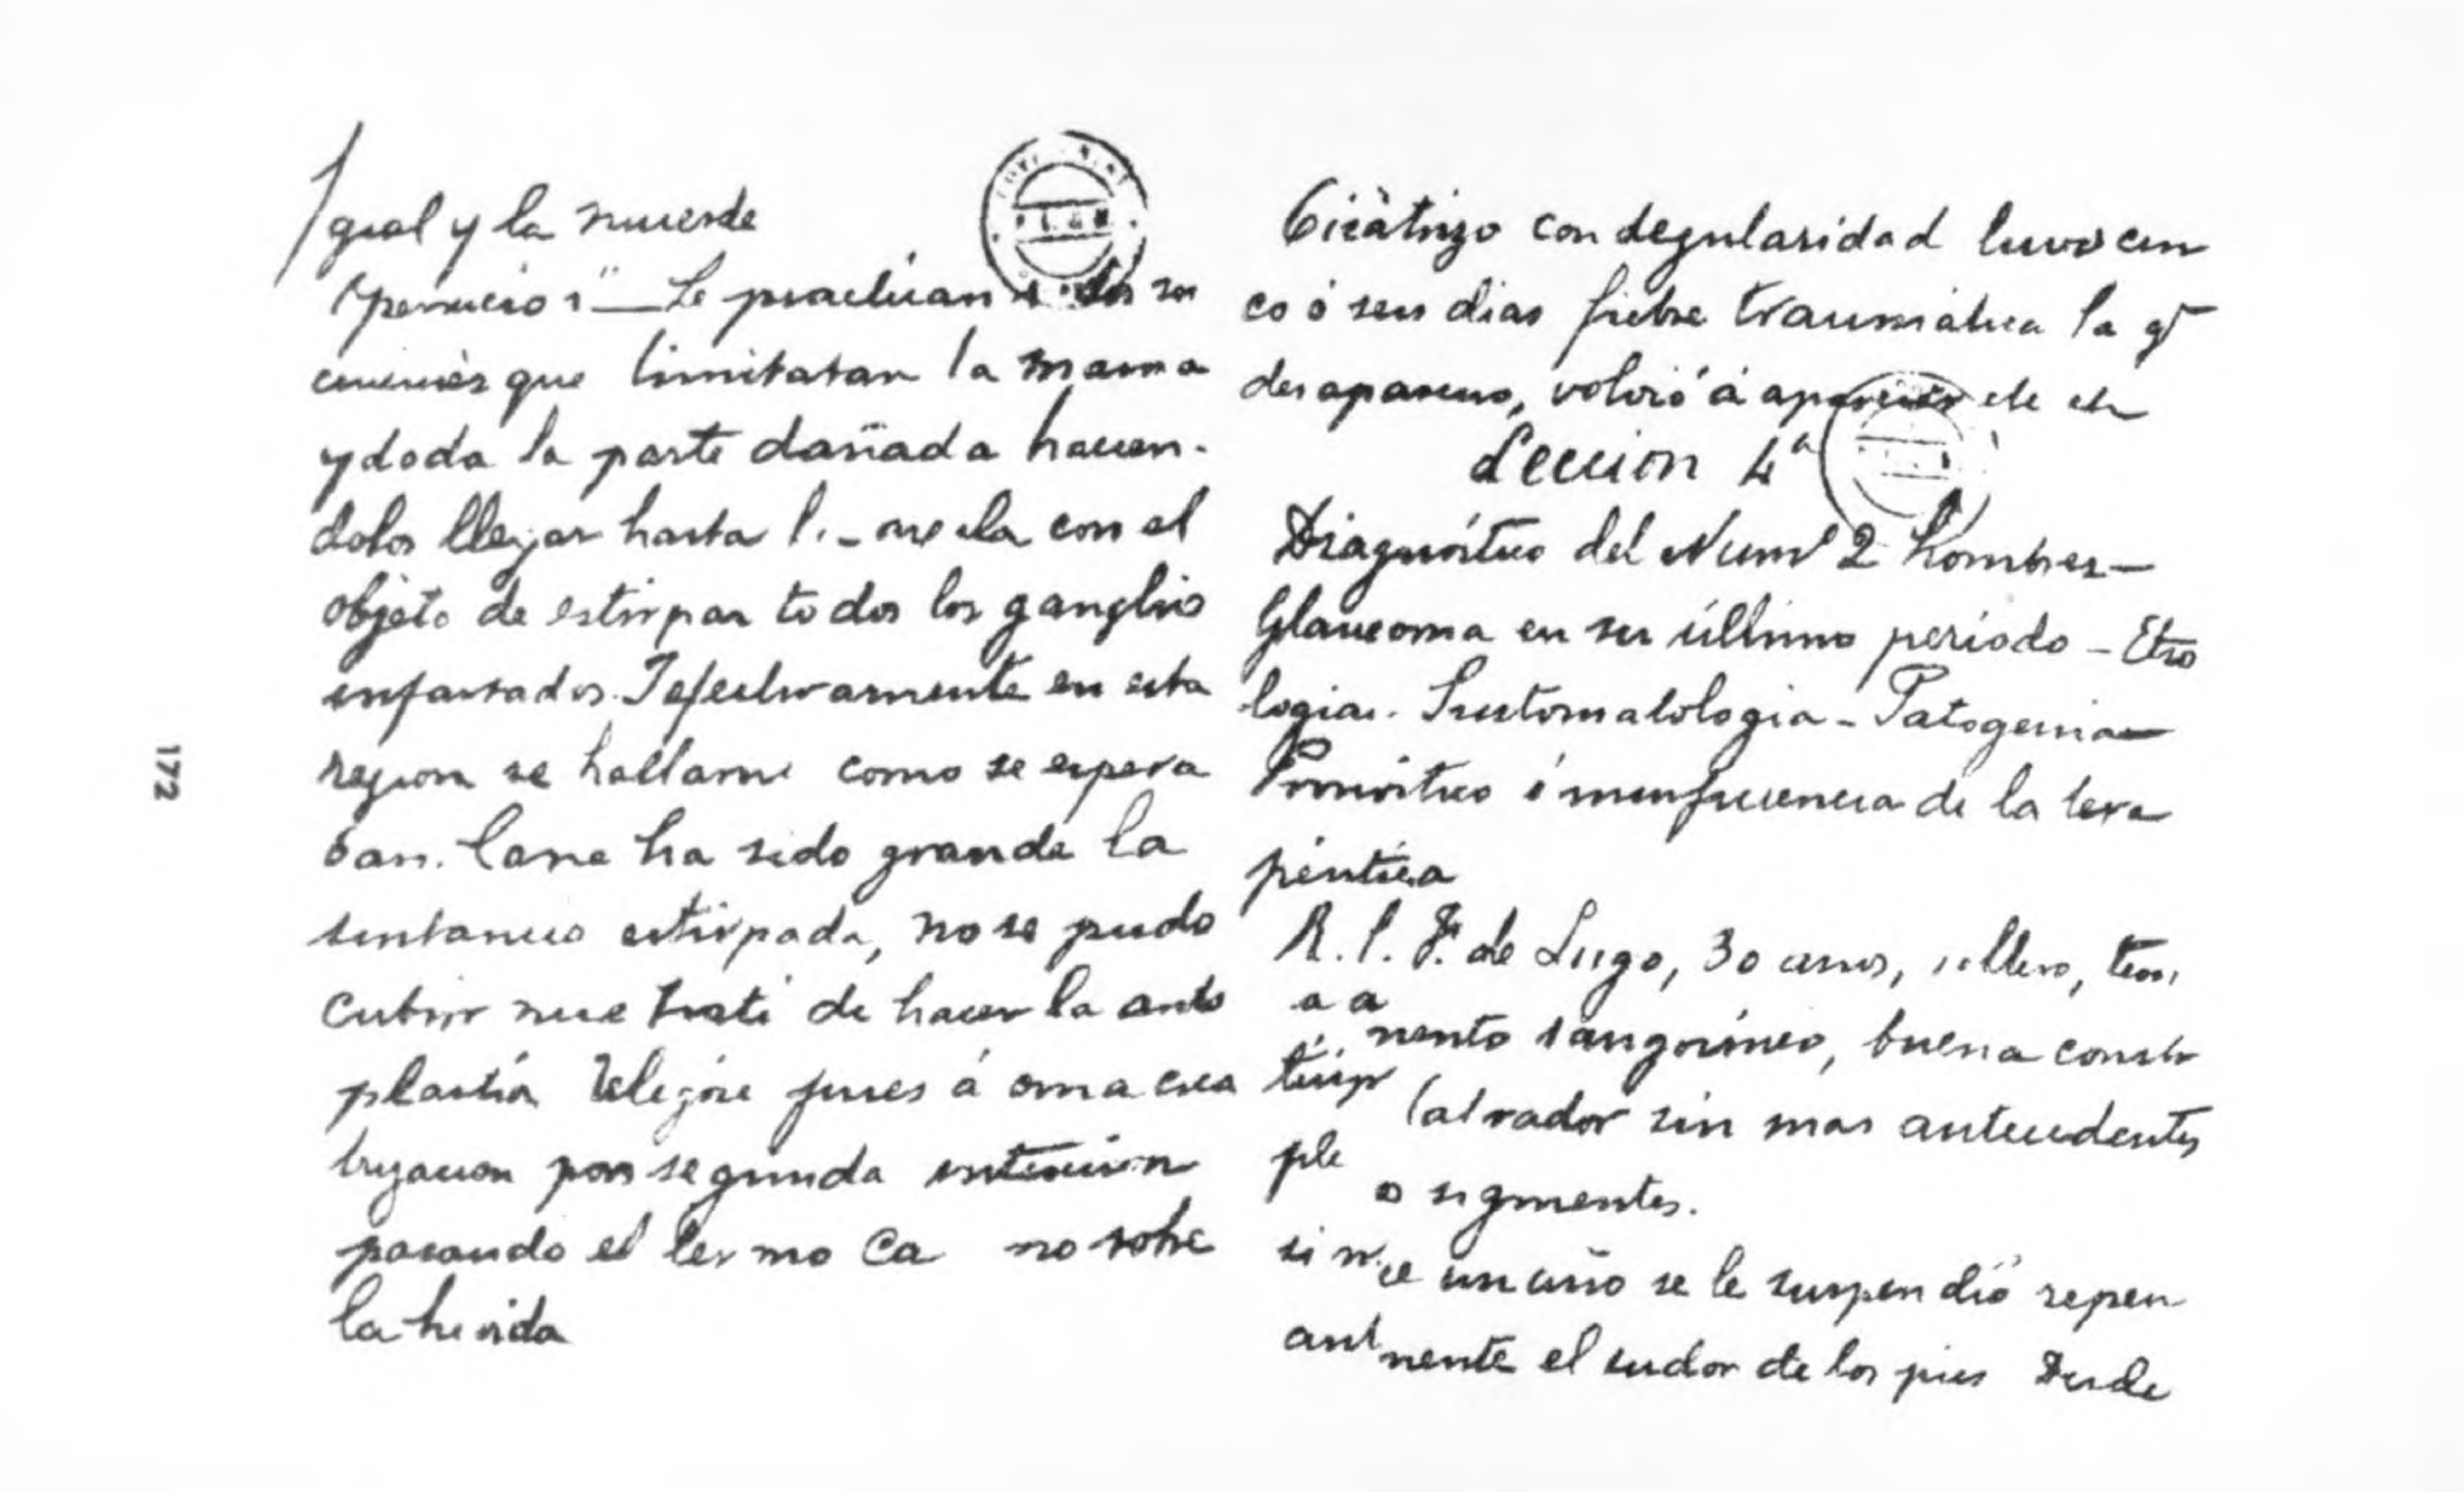 Igual y la muerde
Operación — Le practican dos in
cisiones que limitaban la mama
y doda la parte dañada hacien-
dolos llegar hasta la axila con el
objeto de estirpar todos los ganglios
infartados. I efectivamente en esta
region se hallaron como se espera
ban. Como ha sido grande la
sustancia estirpada, no se pudo
cubrir ni se trató de hacer la auto
plastia Delejóse pues á una cica
trizacion por segunda intencion
pasando el termo ca no sobre
la herida
172
Cicatrizo con degularidad tuvo cin
co ó seis dias fiebre traumatica la qe
desaparecio, volvió á aparecer etc etc
Leccion 4ª
Diagnóstico del Numº 2 hombres —
Glaucoma en su último periodo — Etio
logia. Sintomatologia — Patogenia —
Pronóstico é ineficiencia de la tera
péutica
R. C. F. de Lugo, 30 años, soltero, tem
a a
mento sanguineo, buena consti
labrador sin mas antecedentes
ple
si
un año se le suspendió repen
mente el sudor de los pies Desde